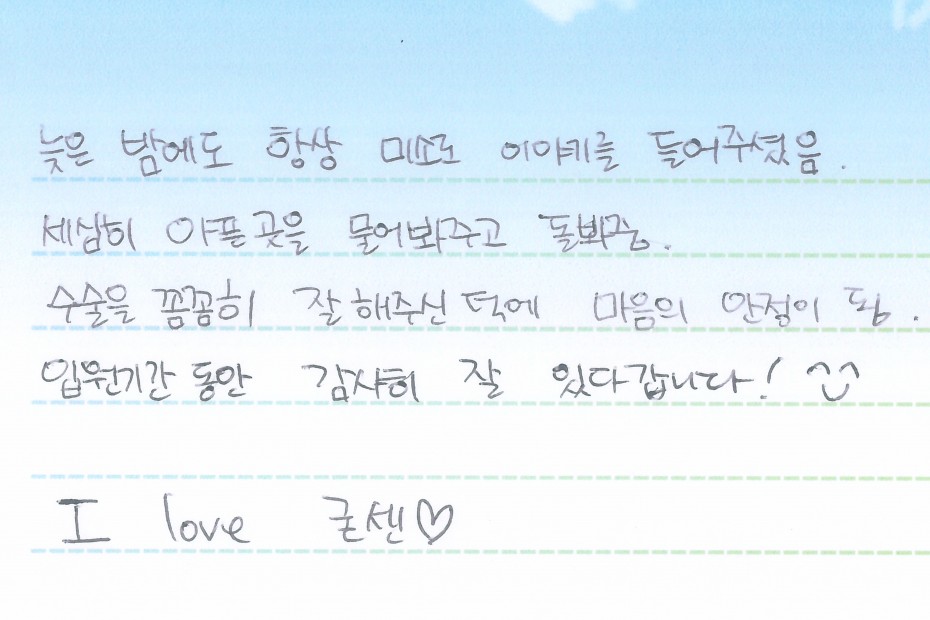 늦은 밤에도 항상 미소로 이야기를 들어주셨음.
세심히 아픈곳을 물어봐주고 돌봐줌.
수술을 꼼꼼히 잘 해주신 덕에 마음의 안정이 됨.
입원기간 동안 감사히 잘 있다갑니다! ^^
I love 굳센♡